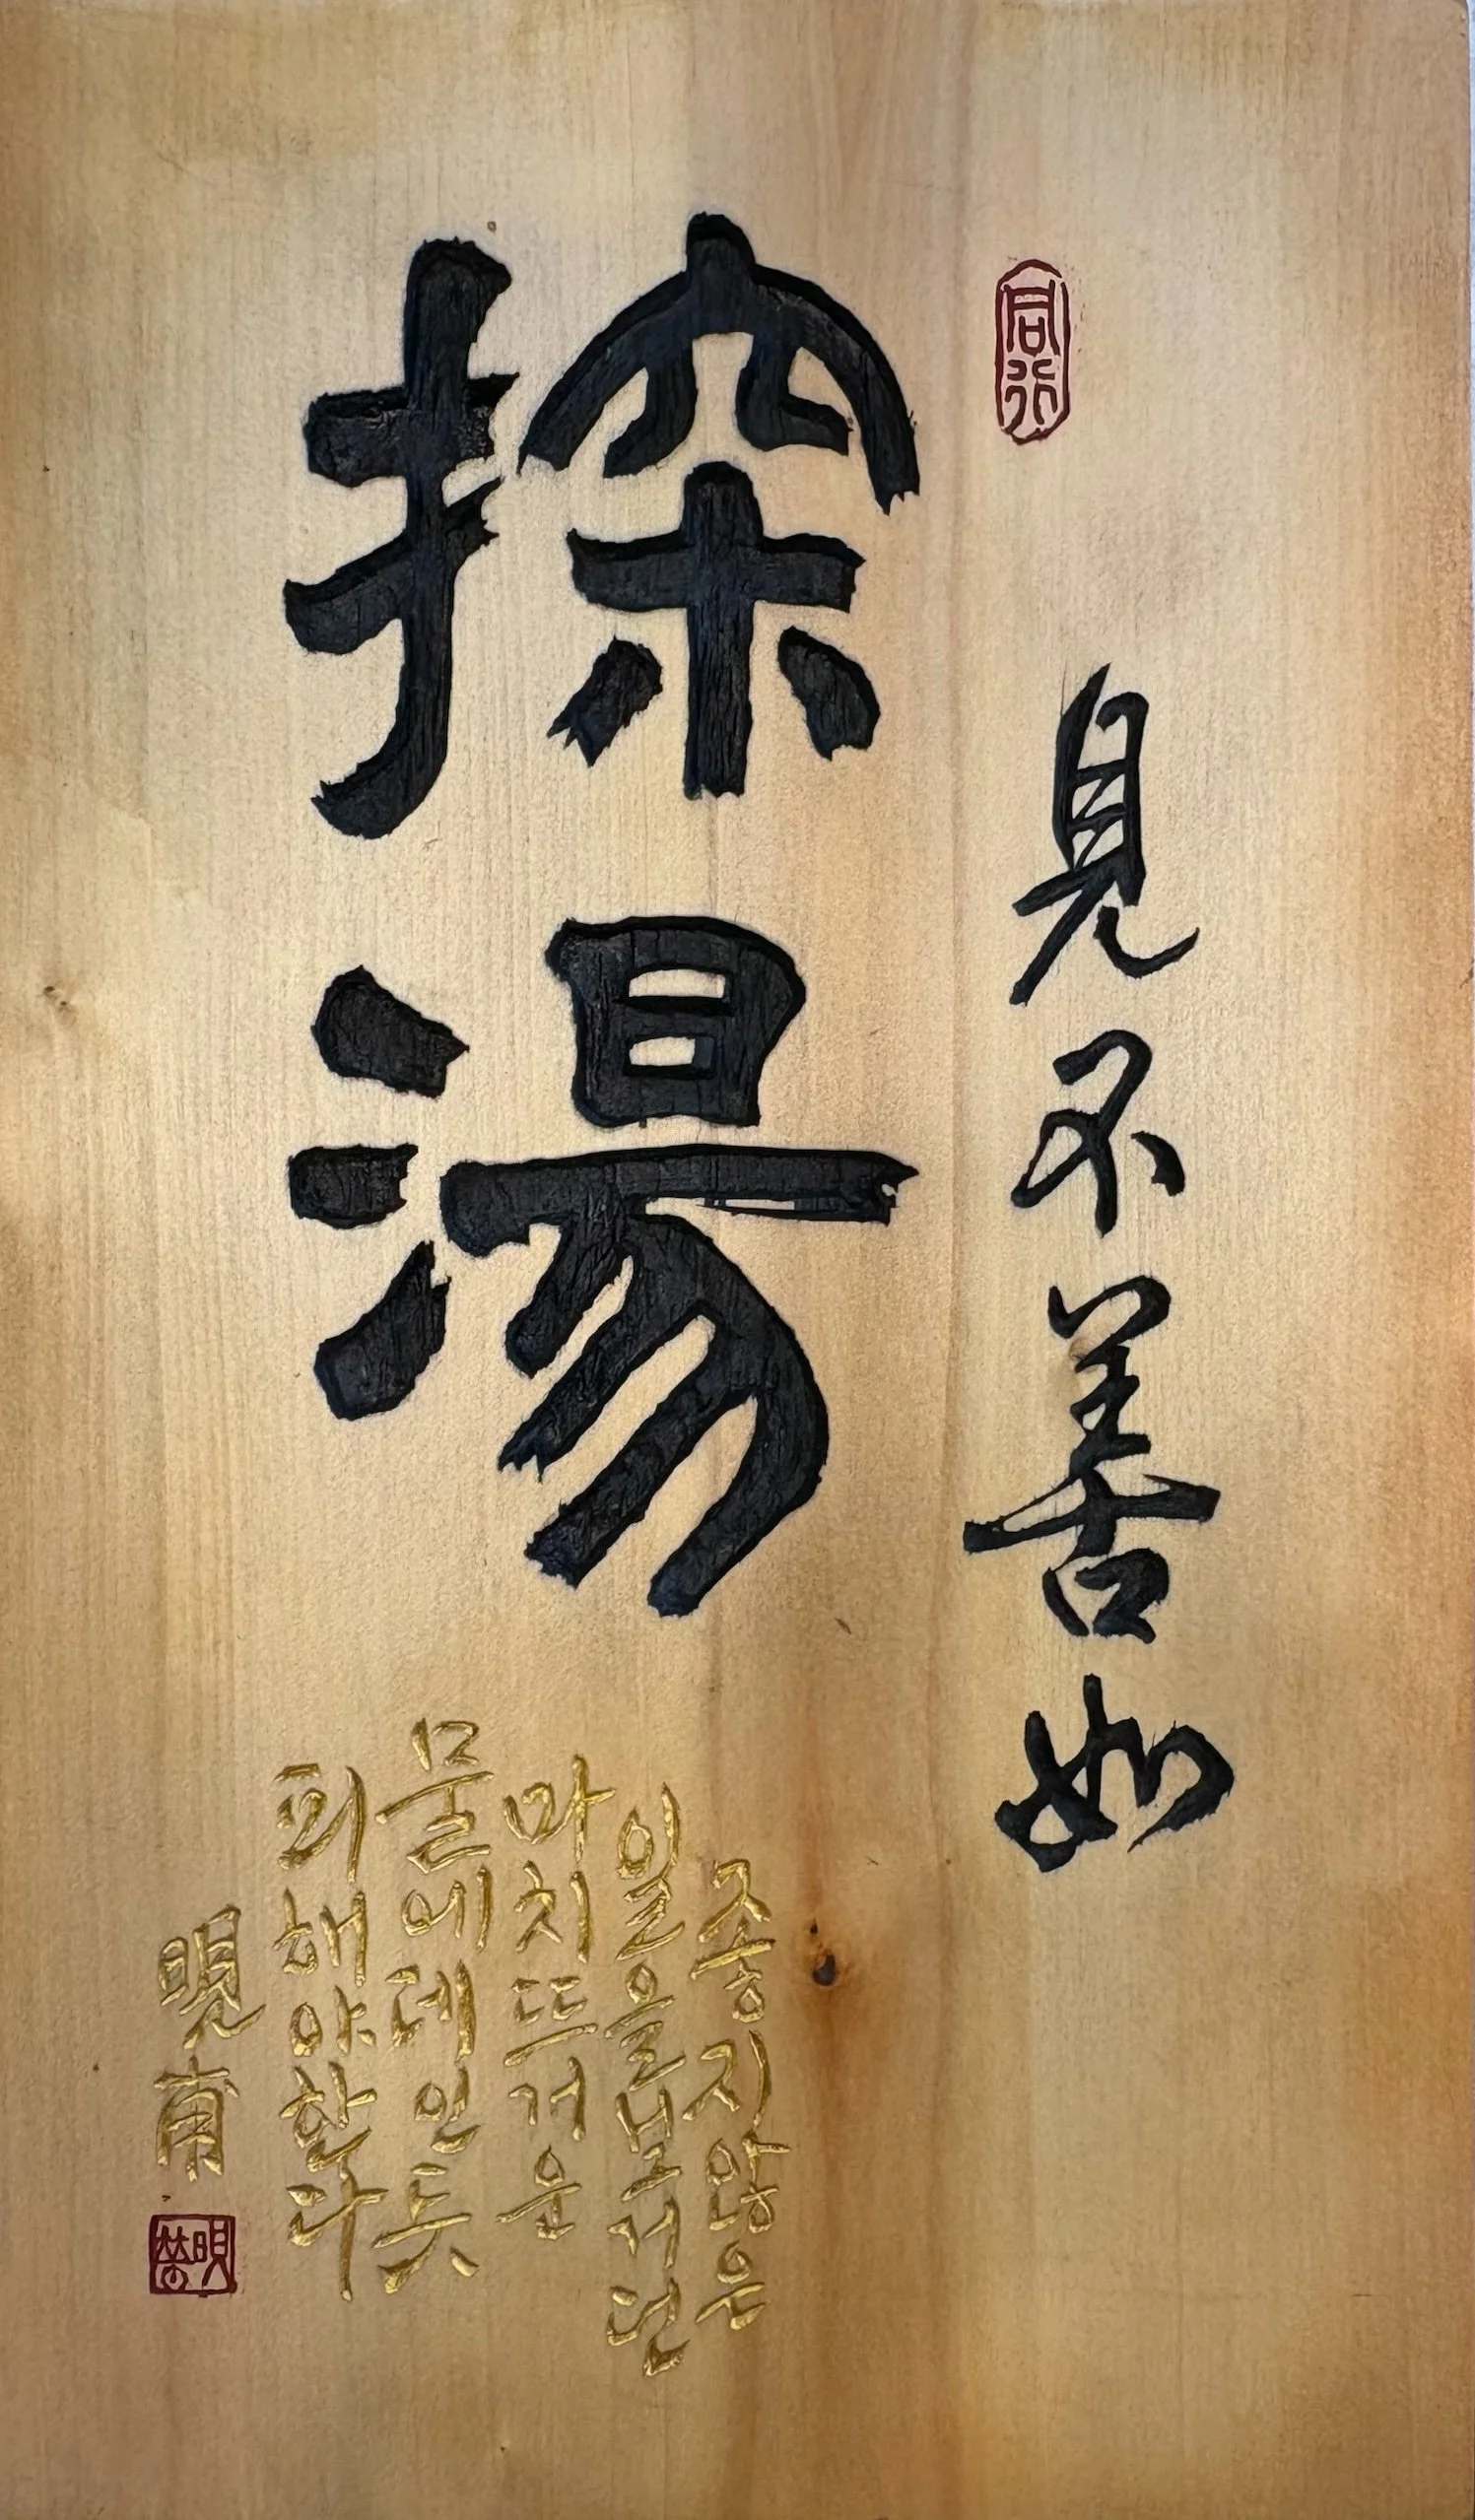 同行
見不善如
探湯
좋지않은
일을보거던
마치뜨거운
물에데인듯
피해야한다
晛甫